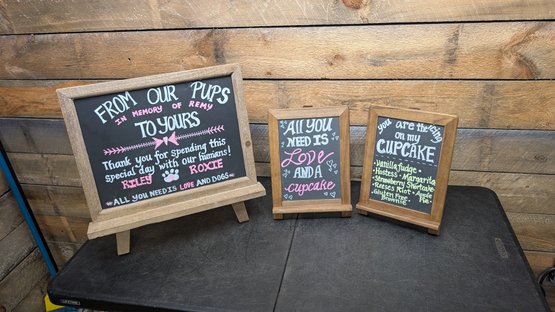 FROM OUR PUPS
IN MEMORY OF REMY
TO YOURS
Thank you for spending this
special day with our humans!
RILEY ROXIE
ALL YOU NEED IS LOVE AND DOGS
All You
NEED IS
Love
AND A
cupcake
you are the icing
on my
CUPCAKE
• Vanilla fudge
• Hostess • Margarita
• Strawberry Shortcake
• Reeses Riot • Apple
• Gluten Free Pie
Brownie
LIFETIME